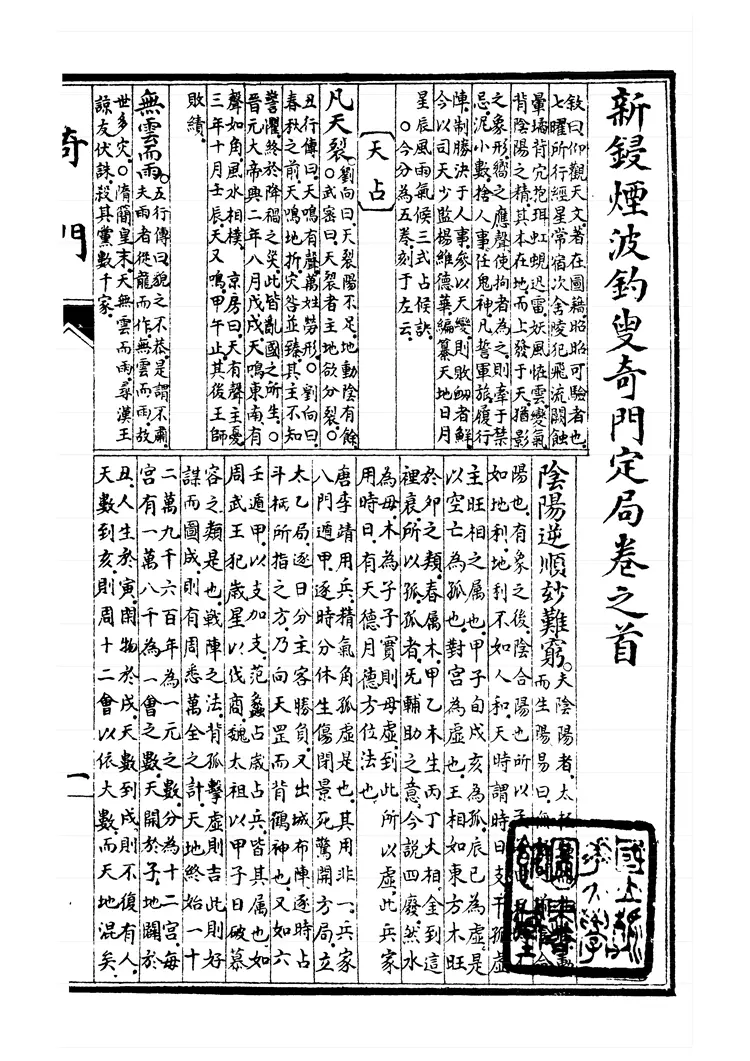 新鋟煙波釣叟奇門定局卷之首
敘曰仰觀天文著在圖籍昭昭可驗者也。
七曜所行經星常宿次舍陵犯飛流鬬蝕
暈璚背穴抱珥虹蜺迅雷妖風恠雲變氣
背陰陽之精其本在地而上發于天猶影
之象形。響之應聲使拘者為之則牽于禁
忌泥小數捨人事任鬼神凡誓軍旅履行
陣。制勝決于人事。參以天變則敗衂者鮮。
今以司天少監楊維德等編纂天地日月
星辰風雨氣候三式占候訣。
。今分為五卷。刻于左云。
天占
凡天裂。劉向曰。天裂陽不足。地動陰有餘
。武密曰。天裂者。主地欲分裂。。
丑行傳曰。天鳴有聲。萬姓勞形。。劉向曰。
春秋之前。天鳴地折。灾咎並臻。其主不知
警懼。終於降禍之災。此皆亂國之所生。。
晉元大帝興二年八月戊戌天鳴東南。有
聲如角。風水相樸。京房曰。天有聲。主憂
三年十月壬辰。天又鳴。甲午止。其後王師
敗績。
無雲而雨。五行傳曰。貌之不恭。是謂不肅。
夫雨者。從龍而作。無雲而雨。故
世多灾。。隋簡皇末。天無雲而雨。尋漢王
諒友伏誅。殺其黨數千家。
陰陽逆順妙難窮。夫陰陽者。太極
而生陽。易曰。
陽也。有象之後。陰合陽也。所以
如地利。地利不如人和。天時謂時日支干孤虛
主旺相之属也。甲子自戌亥為孤。辰巳為虛。是
以空亡為孤也。對宮為虛也。王相如東方木旺
於卯之類。春属木。甲乙木生丙丁火相。金到這
裡衰。所以孤。孤者。旡輔助之意。今說四廢。然水
為毋。木為子。子實則毋虛。到此所以虛。此兵家
用時日。有天德月德方位法也。
唐李靖用兵。精氣角孤虛是也。其用非一。兵家
八門遁甲。逐時分休生傷閉景死驚開方局。立
太乙局。逐日分主客勝負。又出城布陣。逐時占
斗柄所指之方。乃向天罡而背鶴神也。又如六
壬遁甲。以支加支。范蠡占歲占兵。皆其属也。如
周武王犯歲星以伐商。魏太祖以甲子日破慕
容之類是也。戰陣之法。背孤擊虛則吉。此則好
謀而圖成。則有周悉萬全之計。天地終始一十
二萬九千六百年為一元之數。分為十二宮。每
宮有一萬八千為一會之數。天開於子。地闢於
丑。人生於寅。閉物於戌。天數到戌。則不復有人。
天數到亥。則周十二會。以依大數。而天地混矣。
奇門
一